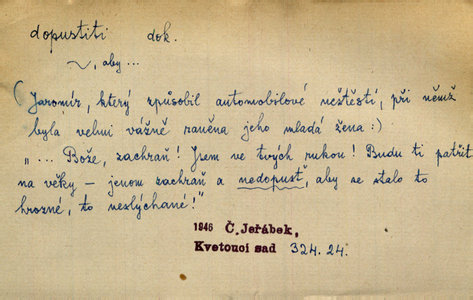 dopustiti dok.
~, aby ...
(Jaromír, který způsobil automobilové neštěstí, při němž
byla velmi vážně raněna jeho mladá žena:)
„... Bože, zachraň! Jsem ve tvých rukou! Budu ti patřit
na věky – jenom zachraň a nedopusť, aby se stalo to
hrozné, to neslýchané!"
1946 Č. Jeřábek,
Kvetoucí sad 324. 24.